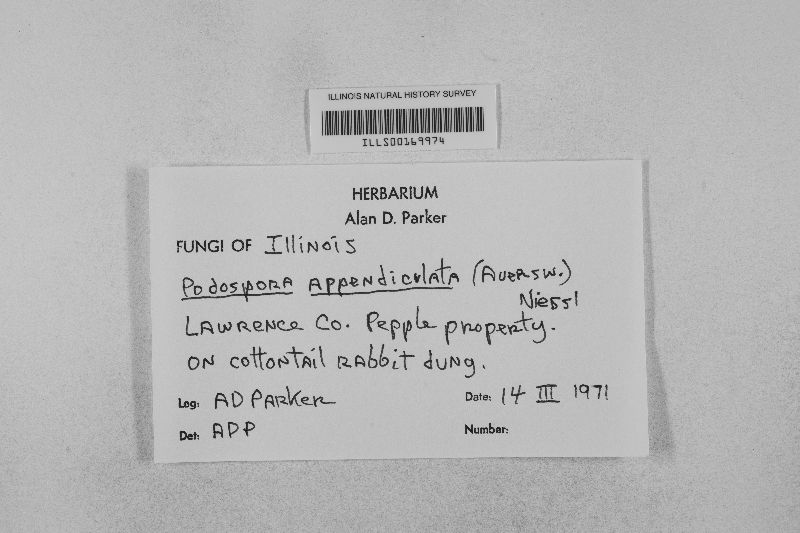 ILLINOIS NATURAL HISTORY SURVEY
ILLS00169974
HERBARIUM
Alan D. Parker
FUNGI OF Illinois
Podospora appendiculata (Auersw.)
Niessl
Lawrence Co. Pepple property.
on cottontail rabbit dung.
Leg: AD Parker Date: 14 III 1971
Det: ADP Number: